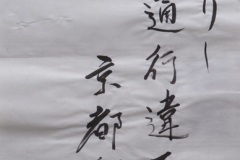 り
通行違
京都